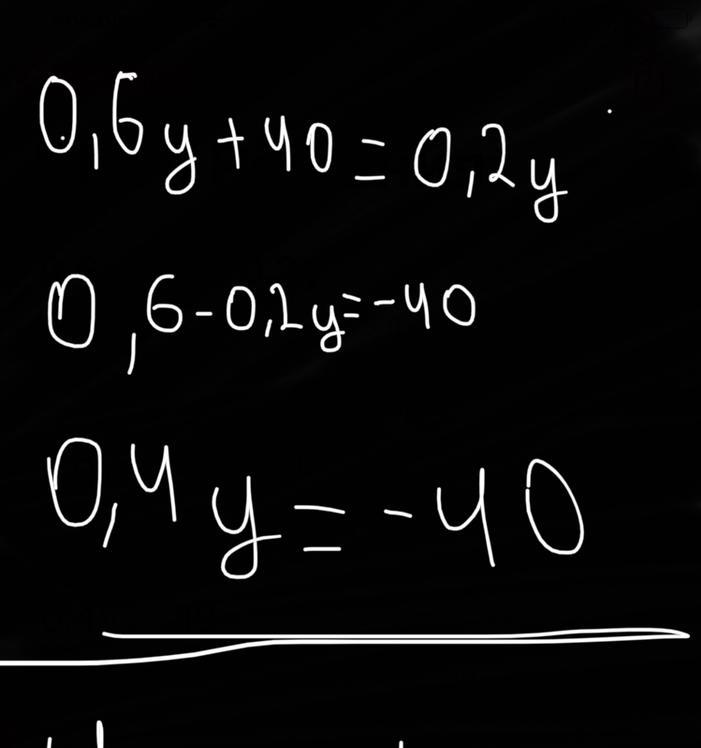 0,6y+40=0,2y
0,6-0,2y=-40
0,4y=-40